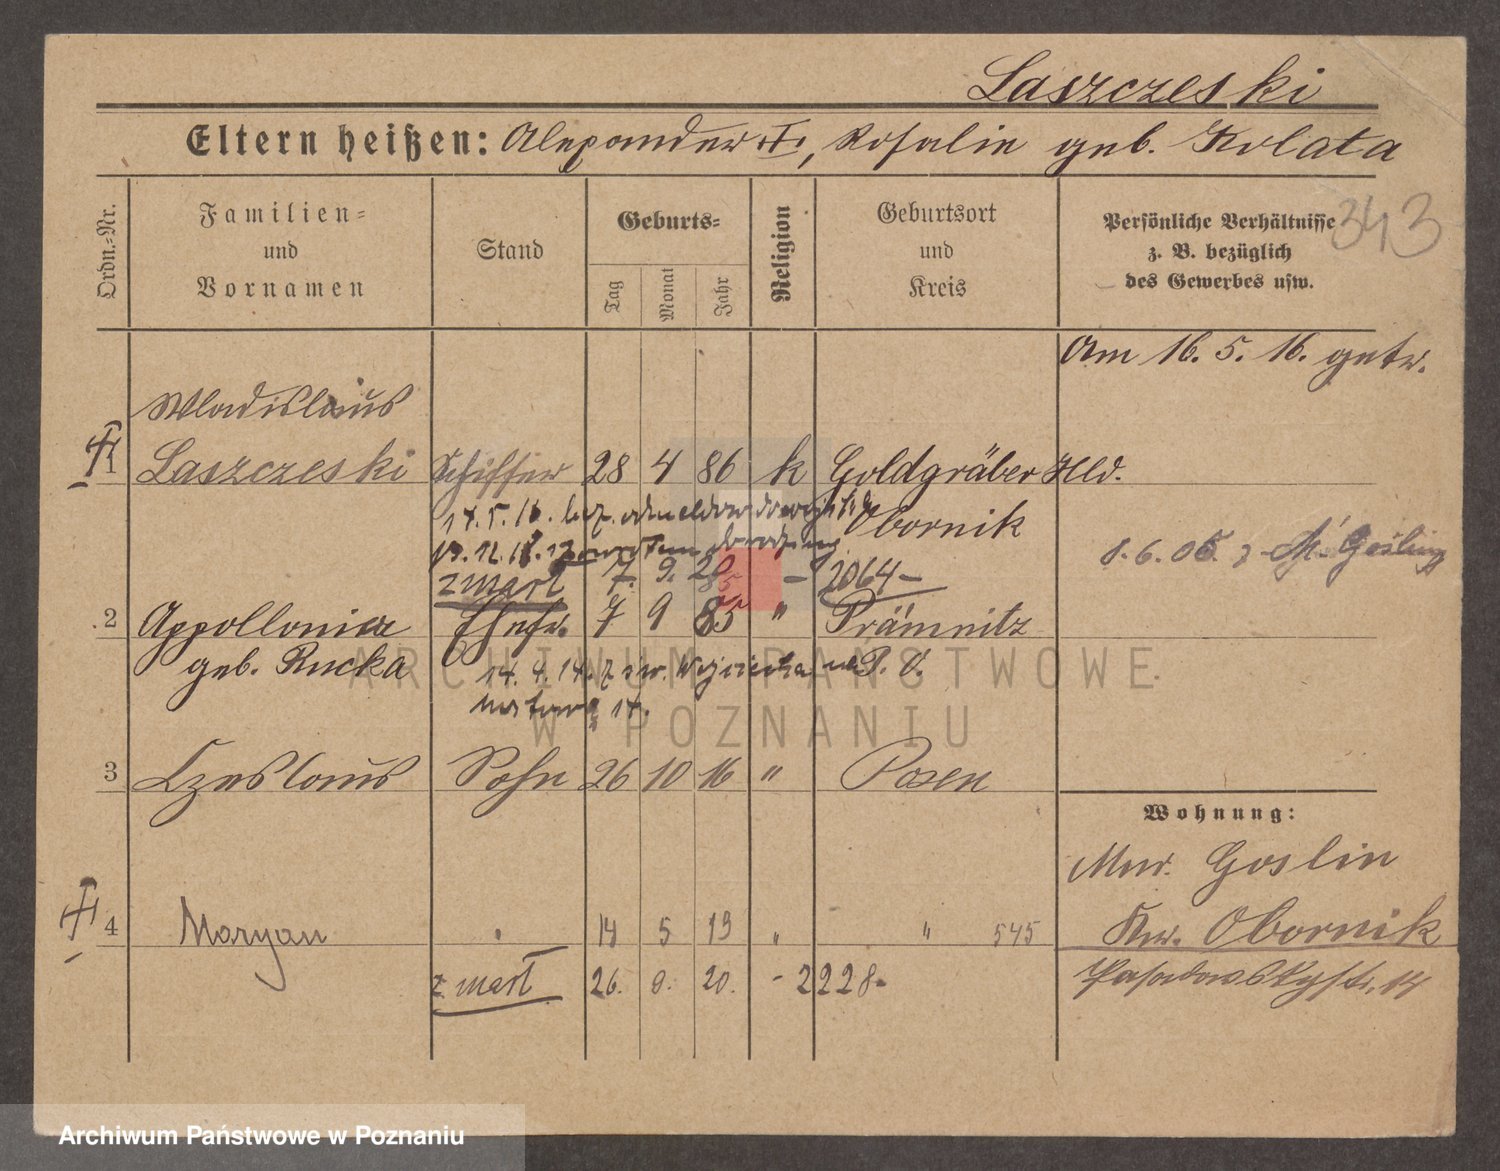 Laszczeski
Eltern heißen: Alexander, Rosalie geb. Kolata
Ordn.-Nr.
Familien-
und
Vornamen
Stand
Geburts-
Tag
Monat
Jahr
Religion
Geburtsort
und
Kreis
Persönliche Verhältnisse
z. B. bezüglich
des Gewerbes usw.
343
Am 16. 5. 16. getr.
Wladislaus
1 Laszczeski Schiffer 28 4 86 k Goldgräber Hld.
17. 5. 16.
Obornik
8. 6. 06.
zmarł 7. 9. 20 - 2064-
2 Appollonia Ehefr. 7 9 85 " Prämnitz
geb. Rucka
14. 4. 14.
ARCHIWUM PAŃSTWOWE
W POZNANIU
3 Czeslaus Sohn 26 10 16 " Posen
Wohnung:
Goslin
4 Maryan 14 5 19 " " 545
Obornik
zmarł 26. 9. 20. - 2228-
14
Archiwum Państwowe w Poznaniu